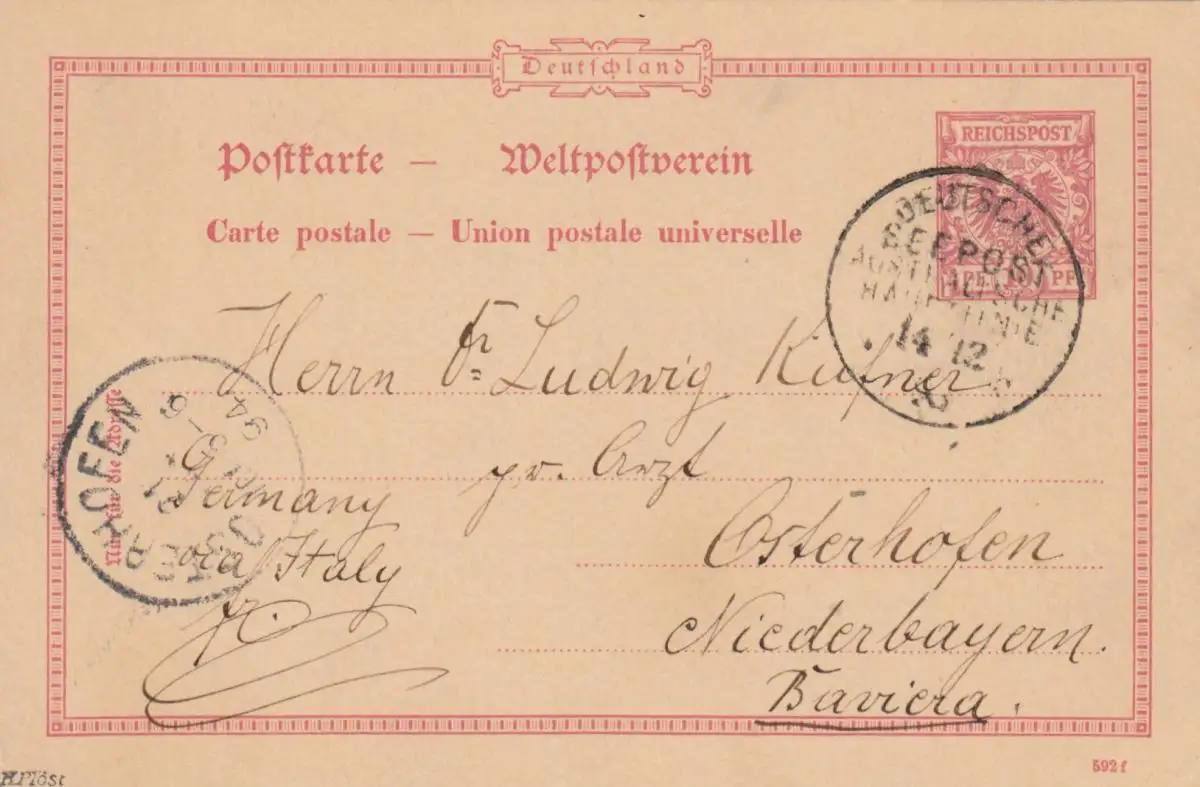 Deutschland
REICHSPOST
Postkarte — Weltpostverein
Carte postale — Union postale universelle
DEUTSCHE
SEEPOST
AUSTRALISCHE
HAUPTLINIE
14 12
Herrn Dr. Ludwig Kufner
pr. Arzt
Germany
via Italy
Osterhofen
Niederbayern.
Baviera.
Nur für die Adresse
OSTERHOFEN
21
94
592 f
H. Pröst